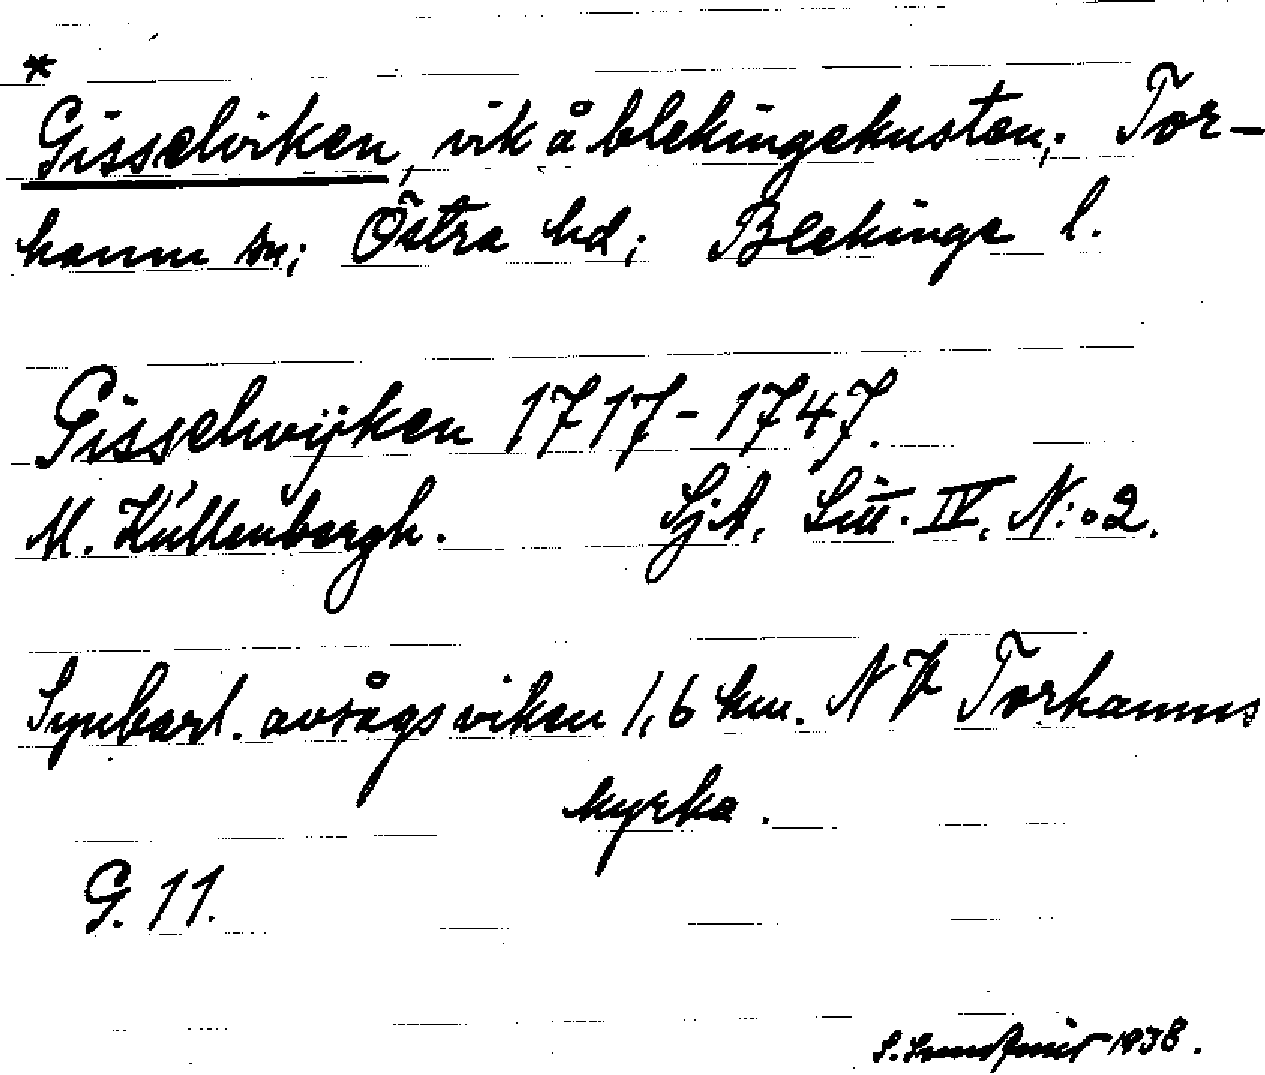 *
Gisselviken, vik å blekingekusten; Tor-
hamn sn; Östra hd; Blekinge l.
Gisselwijken 1717-1747.
M. Küllenbergh. Sj.A. Litt. IV. N:o 2.
Synbarl. avsågs viken 1,6 km. NV Torhamns
kyrka.
G. 11.
S. 1938.